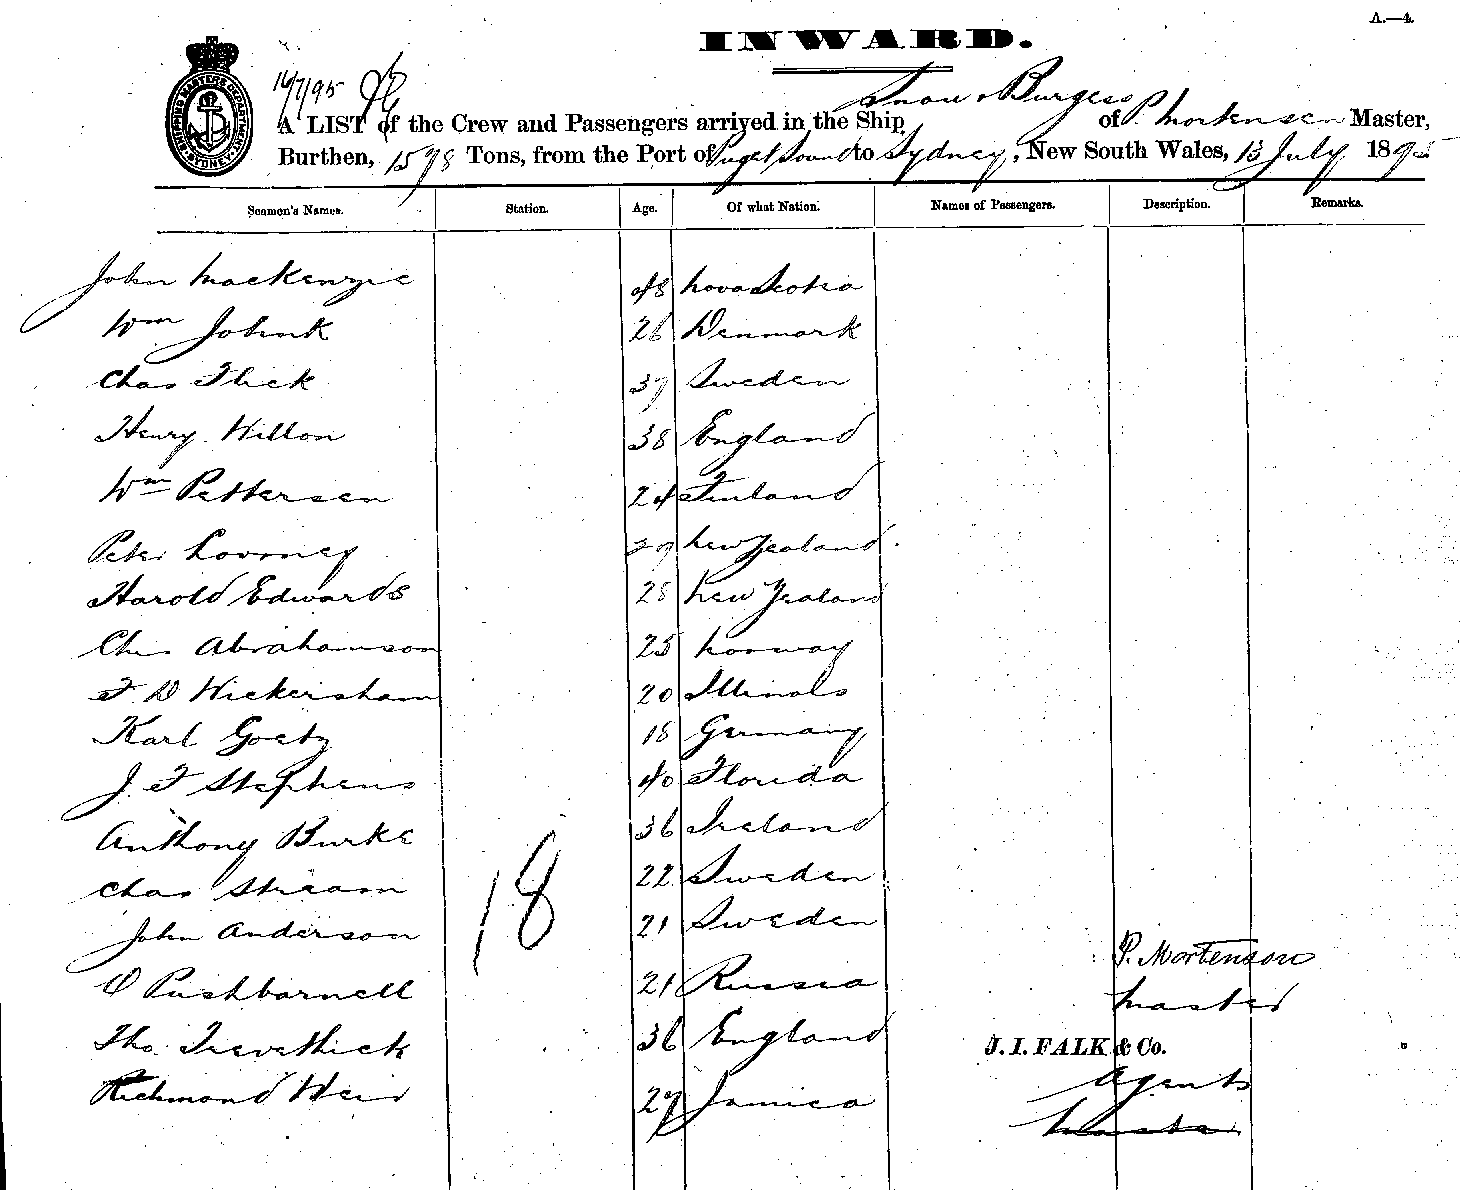 A.—4.
INWARD.
SHIPPING MASTERS DEPARTMENT SYDNEY
16/7/95
Snow & Burgess
A LIST of the Crew and Passengers arrived in the Ship of P. Mortensen Master,
Burthen, 1598 Tons, from the Port of Puget Sound to Sydney, New South Wales, 13 July 1895
Seamen's Names. Station. Age. Of what Nation. Names of Passengers. Description. Remarks.
John Mackenzie 48 Nova Scotia
Wm Johnk 26 Denmark
Chas Flick 37 Sweden
Henry Willon 38 England
Wm Pettersen 24 Finland
Peter 29 New Zealand
Harold Edwards 28 New Zealand
Abrahamson 25 Norway
F D Wickersham 20 Illinois
Karl Goetz 18 Germany
J. F Stephens 40 Florida
Anthony Burke 36 Ireland
Chas Stream 22 Sweden
John Anderson 21 Sweden
18
P. Mortenson
O Pushbarnell 21 Russia
Master
Tho. Trevethick 36 England
J. I. FALK & Co.
Agents
Richmond Weir 27 Jamica
Master